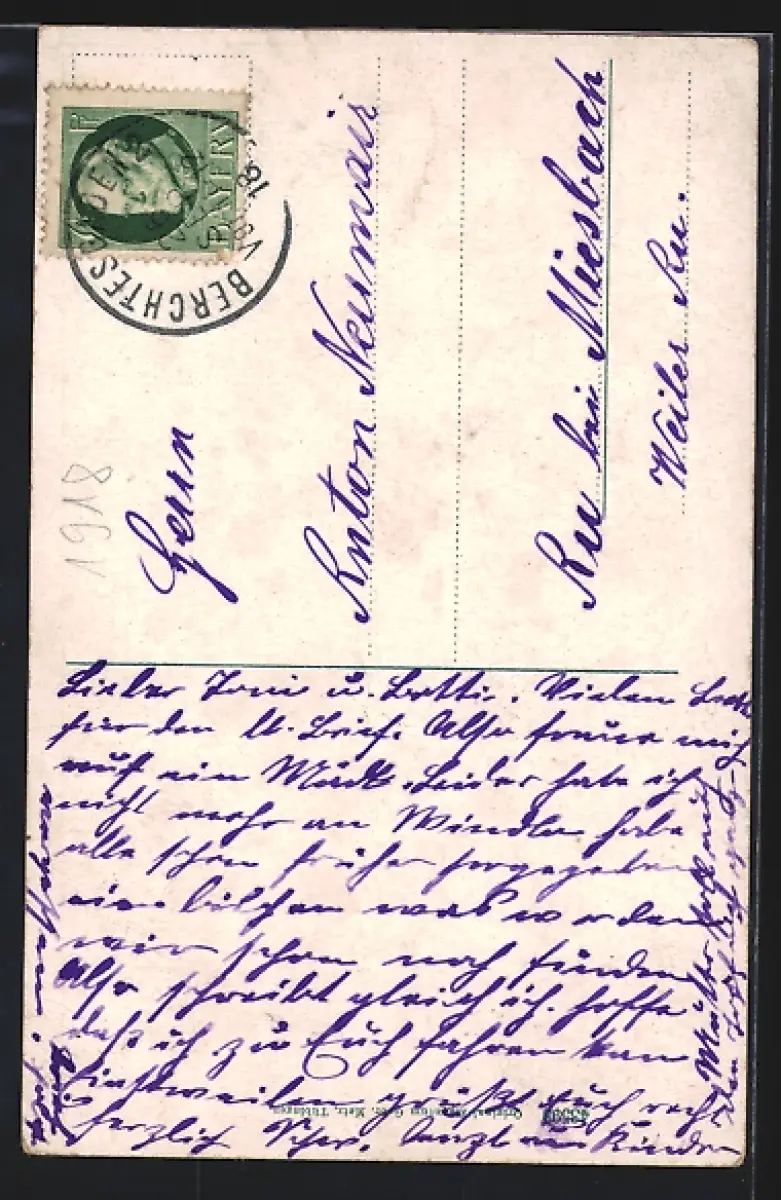 BAYERN
BERCHTESGADEN
1918
Herrn
Anton Neumair
Au bei Miesbach
Weiler Au.
Lieber Toni u. Betti. Vielen Dank
für den lb. Brief. Also freue mich
auf ein Mädl. Leider habe ich
nicht mehr an Windln habe
alle schon früher hergegeben
ein bischen was werden
wir schon noch finden
Also schreibt gleich ich hoffe
daß ich zu Euch fahren kan
Einstweilen grüßt Euch recht
herzlich Schw. u Kinder
Mutter